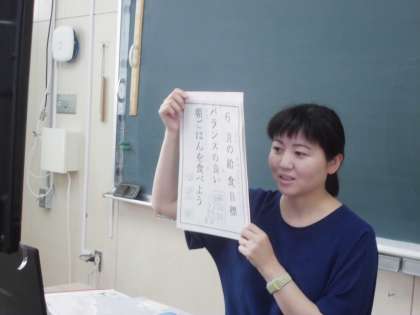 6月の給食目標
バランスの良い
朝ごはんを食べよう